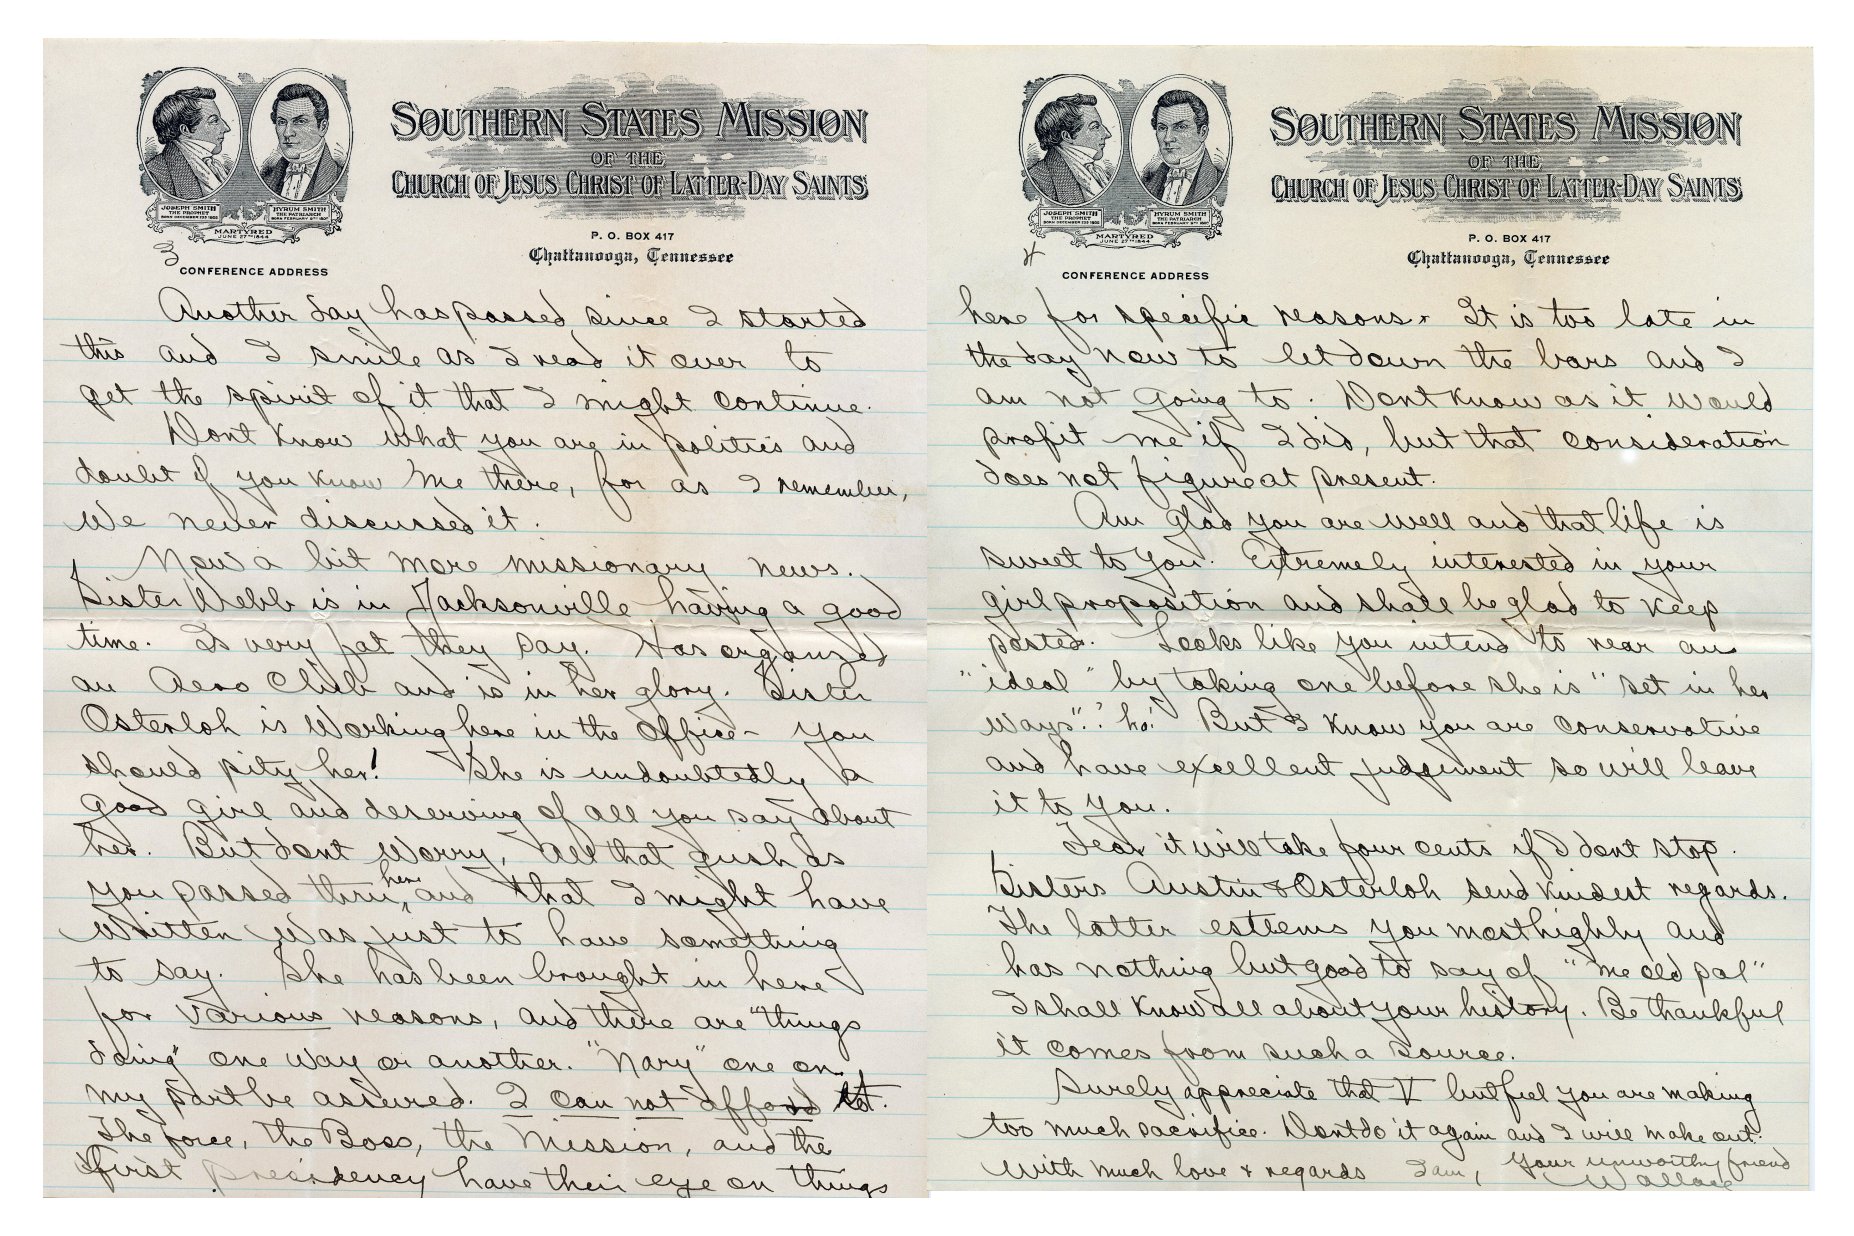 JOSEPH SMITH
THE PROPHET
BORN DECEMBER 23D 1805
HYRUM SMITH
THE PATRIARCH
BORN FEBRUARY 9TH 1800
MARTYRED
JUNE 27TH 1844
SOUTHERN STATES MISSION
OF THE
CHURCH OF JESUS CHRIST OF LATTER-DAY SAINTS
P. O. BOX 417
Chattanooga, Tennessee
3
CONFERENCE ADDRESS
Another day has passed since I started
this and I smile as I read it over to
get the spirit of it that I might continue.
Dont know what you are in politics and
doubt if you know me there, for as I remember,
we never discussed it.
Now a bit more missionary news.
Sister Webb is in Jacksonville having a good
time. Is very fat they say. Has organized
an Aero Club and is in her glory. Sister
Osterloh is working here in the office - you
should pity her! She is undoubtedly a
good girl and deserving of all you say about
her. But dont worry, all that gush as
you passed thru here, and that I might have
written was just to have something
to say. She has been brought in here
for various reasons, and there are "things
doing" one way or another. "Nary" one on
my part be assured. I can not afford it.
The force, the Boss, the Mission, and the
first presidency have their eye on things
JOSEPH SMITH
THE PROPHET
BORN DECEMBER 23D 1805
HYRUM SMITH
THE PATRIARCH
BORN FEBRUARY 9TH 1800
MARTYRED
JUNE 27TH 1844
SOUTHERN STATES MISSION
OF THE
CHURCH OF JESUS CHRIST OF LATTER-DAY SAINTS
P. O. BOX 417
Chattanooga, Tennessee
4
CONFERENCE ADDRESS
here for specific reasons. It is too late in
the day now to let down the bars and I
am not going to. Dont know as it would
profit me if I did, but that consideration
does not figure at present.
Am glad you are well and that life is
sweet to you. Extremely interested in your
girl proposition and shall be glad to keep
posted. Looks like you intend to rear an
"ideal" by taking one before she is "set in her
ways"! ho! But I know you are conservative
and have excellent judgement so will leave
it to you.
Fear it will take four cents if I dont stop.
Sisters Austin & Osterloh send kindest regards.
The latter esteems you most highly and
has nothing but good to say of "me old pal"
I shall know all about your history. Be thankful
it comes from such a source.
Surely appreciate that V but feel you are making
too much sacrifice. Dont do it again and I will make out.
With much love & regards I am, Your unworthy friend
Wallace